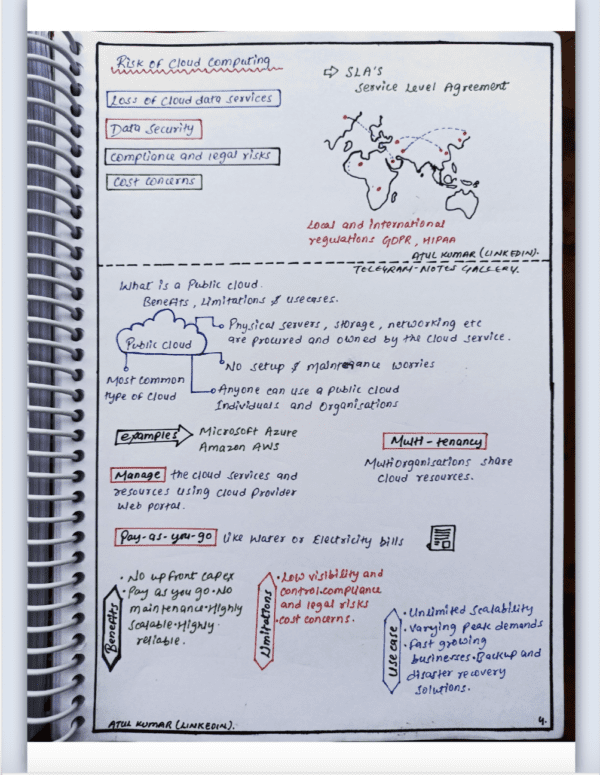 Risk of Cloud Computing
Loss of cloud data services
Data Security
Compliance and legal risks
Cost concerns
⇨ SLA's
Service Level Agreement
Local and International
regulations GDPR, HIPAA
ATUL KUMAR (LINKEDIN).
TELEGRAM-NOTES GALLERY.
What is a Public cloud.
Benefits, Limitations & usecases.
Public cloud
Physical servers, storage, networking etc
are procured and owned by the cloud service.
No setup & maintenance worries
Most common
type of cloud
Anyone can use a public cloud
Individuals and Organisations
examples
Microsoft Azure
Amazon AWS
Multi-tenancy
Multiorganisations share
cloud resources.
Manage the cloud services and
resources using cloud Provider
Web portal.
Pay-as-you-go like Water or Electricity bills
Benefits
• No upfront capex
• Pay as you go • No
maintenance • Highly
scalable • Highly
reliable.
Limitations
• Low visibility and
control • compliance
and legal risks
• cost concerns.
Use case
• Unlimited Scalability
• Varying peak demands
• Fast growing
businesses • Backup and
disaster recovery
solutions.
ATUL KUMAR (LINKEDIN).
4.